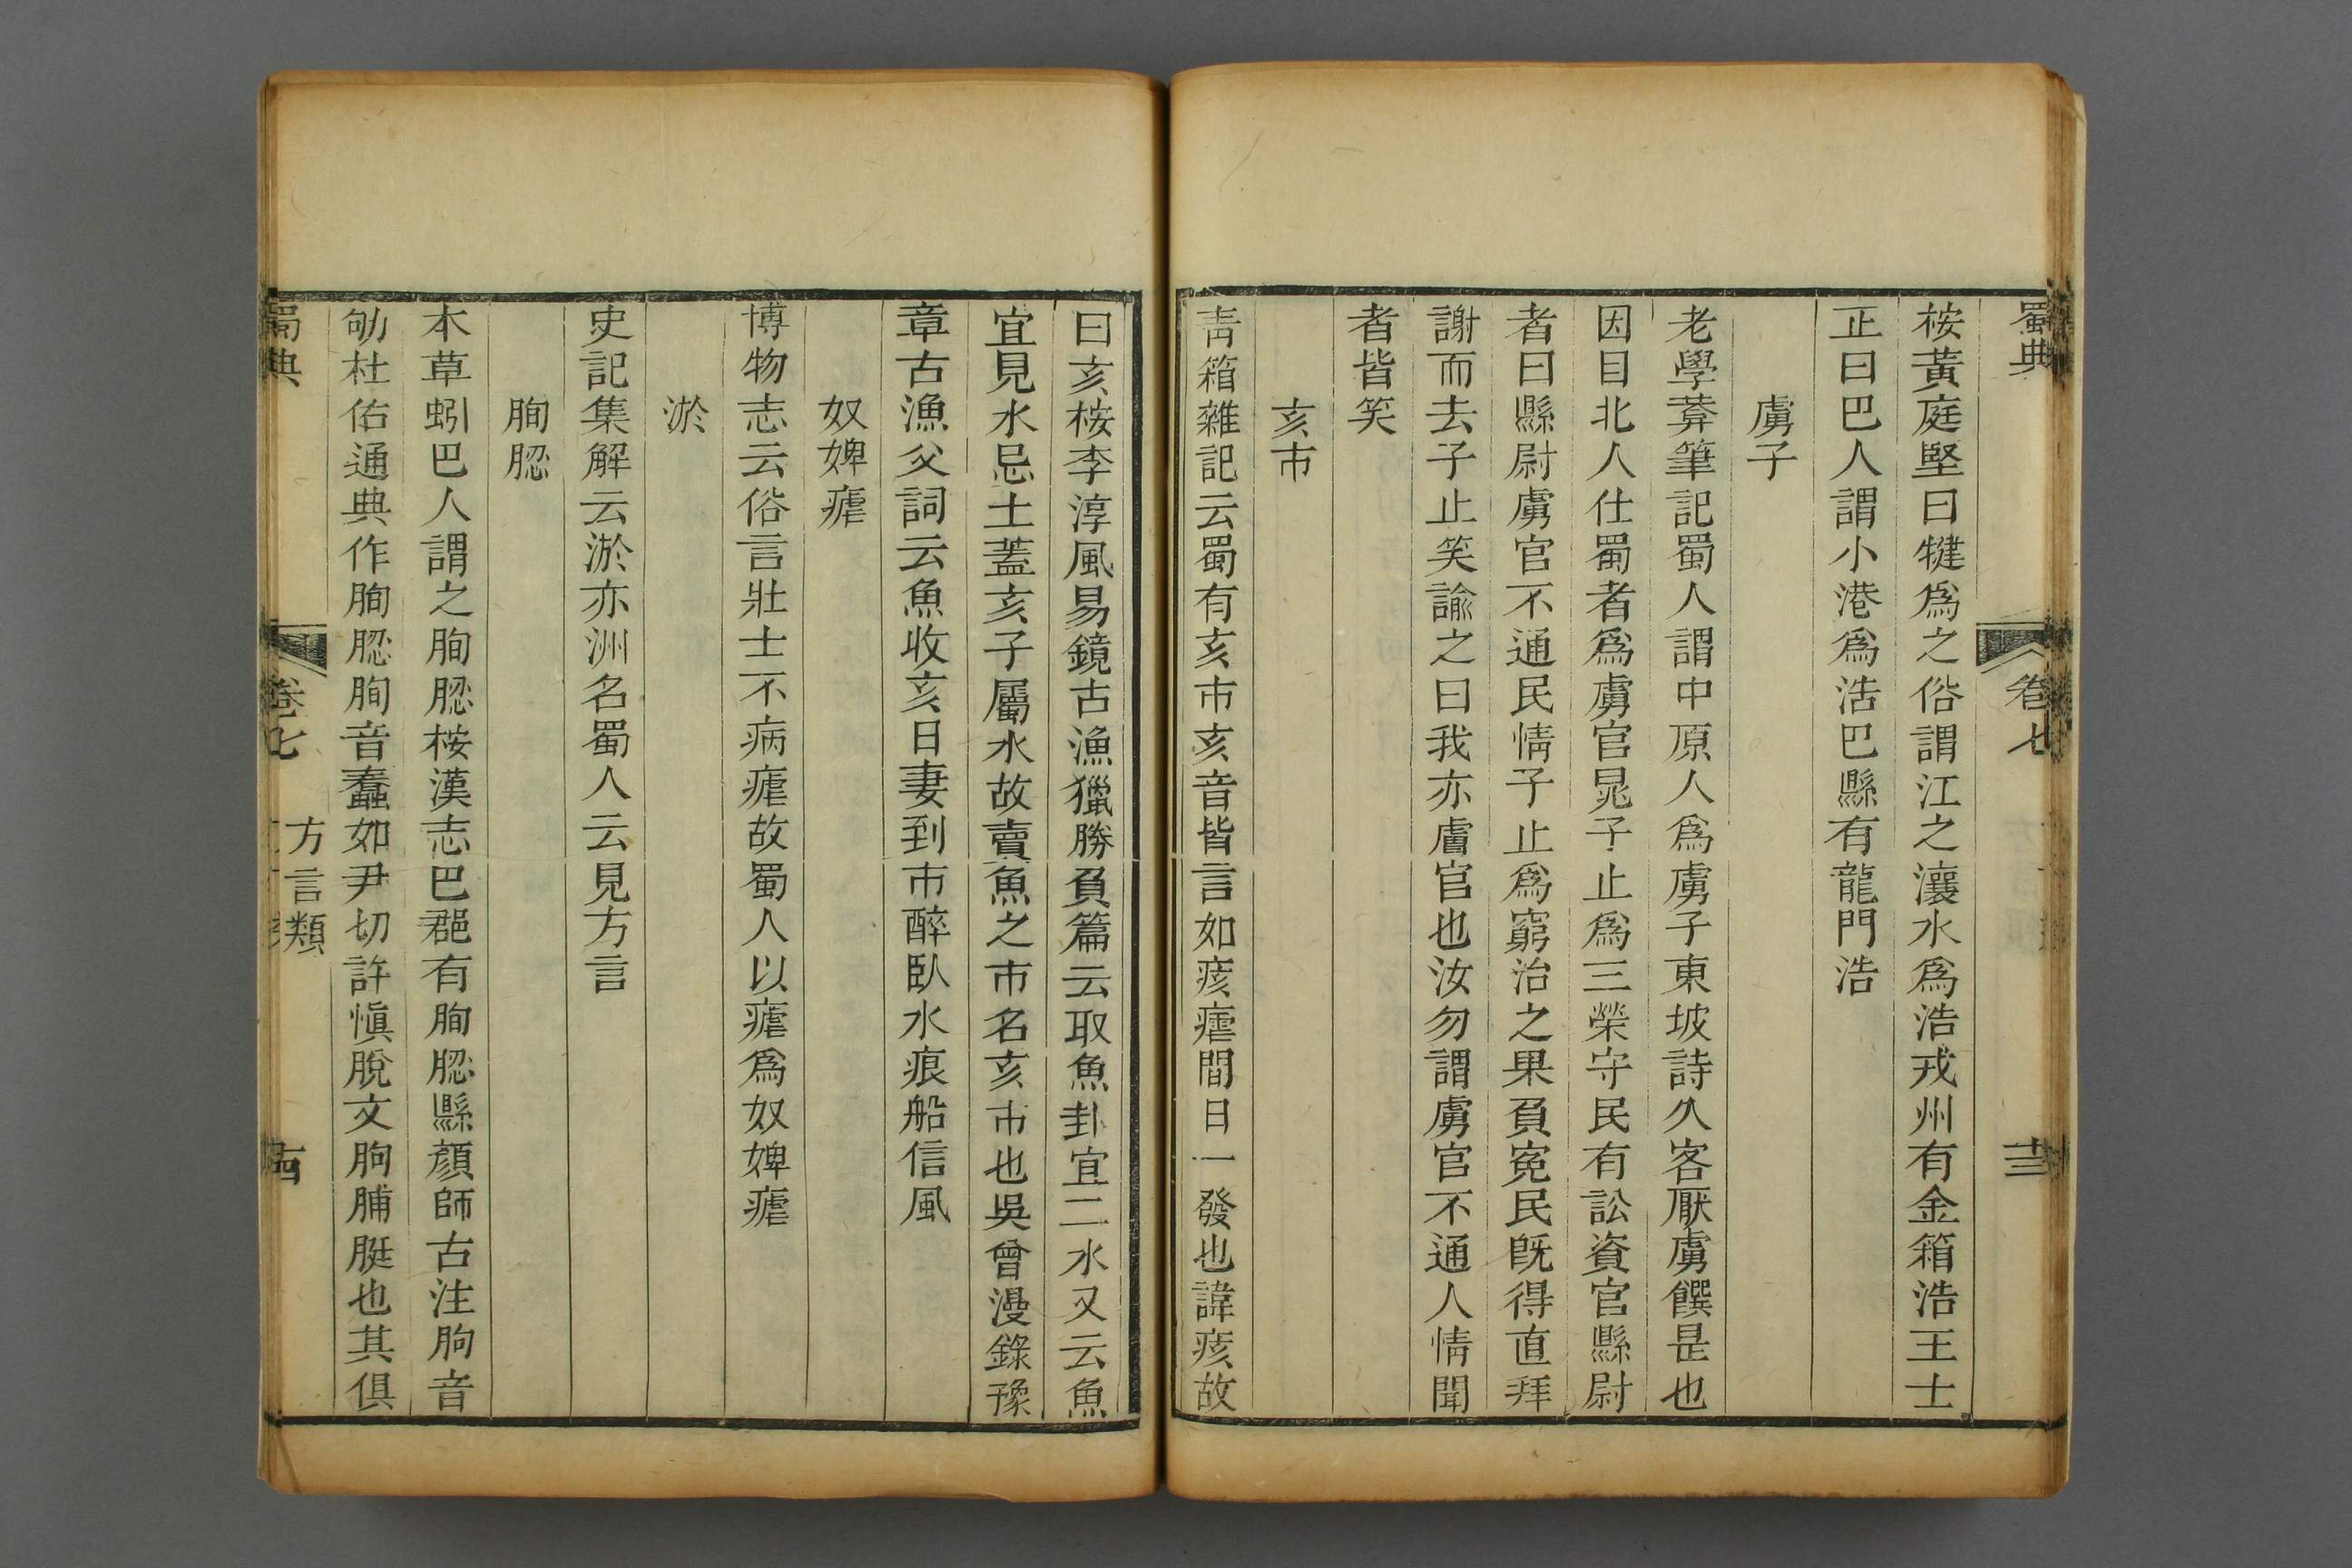 蜀典 卷七 十三
桉黃庭堅曰犍爲之俗謂江之瀼水爲浩戎州有金箱浩王士
正曰巴人謂小港爲浩巴縣有龍門浩
虜子
老學菴筆記蜀人謂中原人爲虜子東坡詩久客厭虜饌是也
因目北人仕蜀者爲虜官晁子止爲三榮守民有訟資官縣尉
者曰縣尉虜官不通民情子止爲窮治之果負寃民旣得直拜
謝而去子止笑諭之曰我亦虜官也汝勿謂虜官不通人情聞
者皆笑
亥市
青箱雜記云蜀有亥市亥音皆言如痎瘧間日一發也諱痎故
曰亥桉李淳風易鏡古漁獵勝負篇云取魚卦宜二水又云魚
宜見水忌土蓋亥子屬水故賣魚之市名亥市也吳曾漫錄豫
章古漁父詞云魚收亥日妻到市醉臥水痕船信風
奴婢瘧
博物志云俗言壯士不病瘧故蜀人以瘧爲奴婢瘧
淤
史記集解云淤亦洲名蜀人云見方言
朐䏰
本草蚓巴人謂之朐䏰桉漢志巴郡有朐䏰縣顏師古注朐音
劬杜佑通典作朐䏰朐音蠢如尹切許愼脫文朐脯脡也其俱
蜀典 卷七 方言類 十四